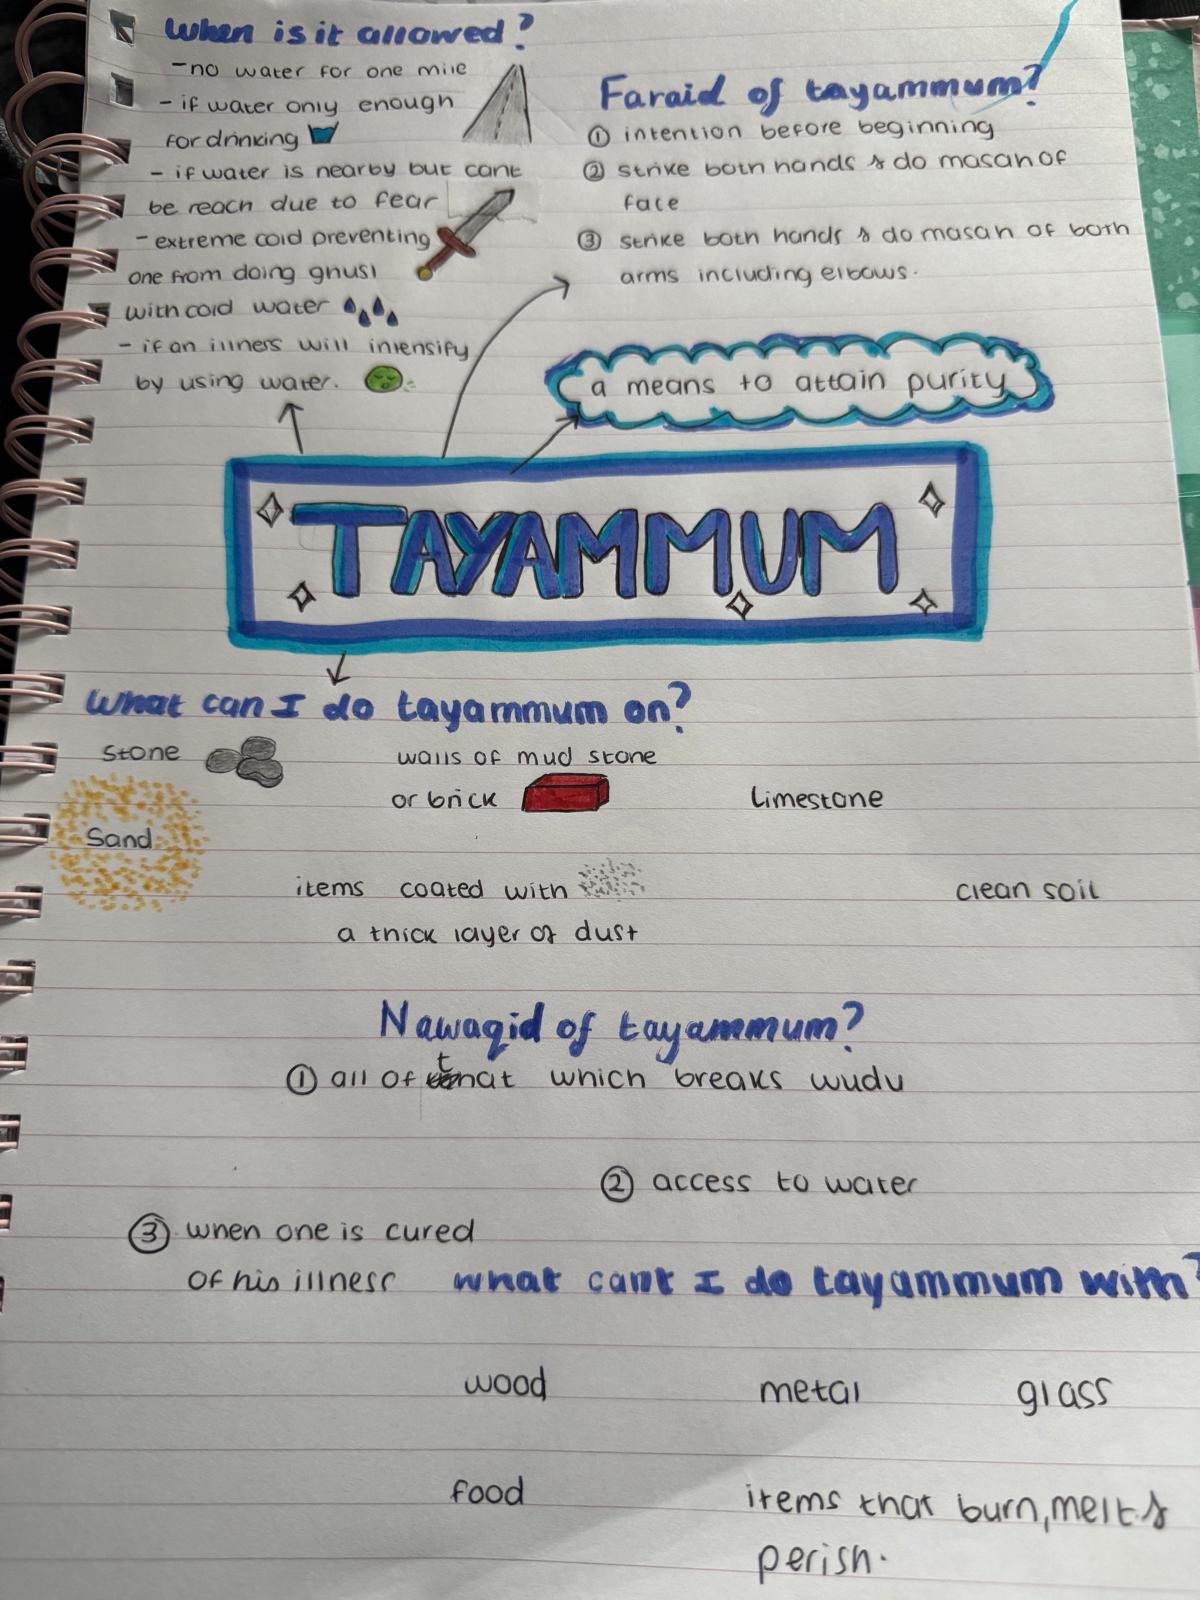 When is it allowed?
-no water for one mile
- if water only enough
for drinking
- if water is nearby but cant
be reach due to fear
- extreme cold preventing
one from doing ghusl
with cold water
- if an illness will intensify
by using water.
Faraid of tayammum?
① intention before beginning
② strike both hands & do masah of
face
③ strike both hands & do masah of both
arms including elbows.
a means to attain purity
TAYAMMUM
What can I do tayammum on?
Stone
walls of mud stone
or brick
Limestone
Sand
items coated with
a thick layer of dust
clean soil
Nawaqid of tayammum?
① all of that which breaks wudu
② access to water
③ when one is cured
of his illness
what cant I do tayammum with?
wood
metal
glass
food
items that burn, melt &
perish.